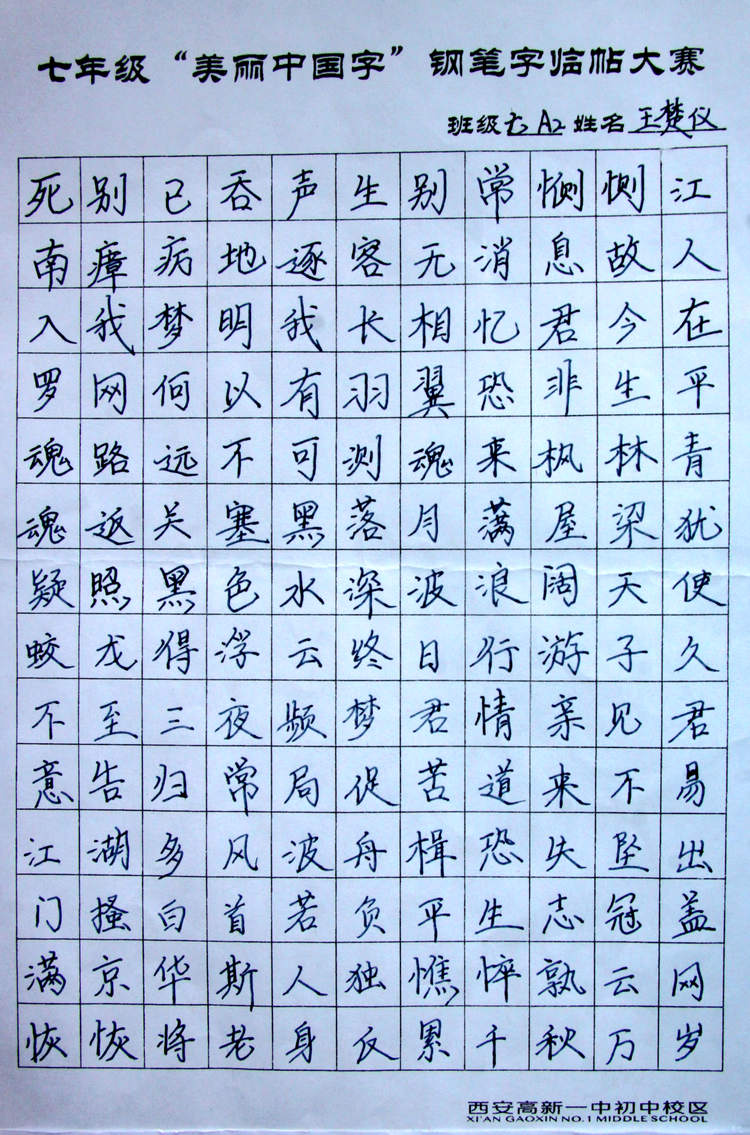 七年级“美丽中国字”钢笔字临帖大赛
班级 七A2 姓名 王楚仪
死别已吞声生别常恻恻江
南瘴病地逐客无消息故人
入我梦明我长相忆君今在
罗网何以有羽翼恐非生平
魂路远不可测魂来枫林青
魂返关塞黑落月满屋梁犹
疑照黑色水深波浪阔天使
蛟龙得浮云终日行游子久
不至三夜频梦君情亲见君
意告归常局促苦道来不易
江湖多风波舟楫恐失坠出
门搔白首若负平生志冠盖
满京华斯人独憔悴孰云网
恢恢将老身反累千秋万岁
西安高新一中初中校区
XI'AN GAOXIN NO.1 MIDDLE SCHOOL